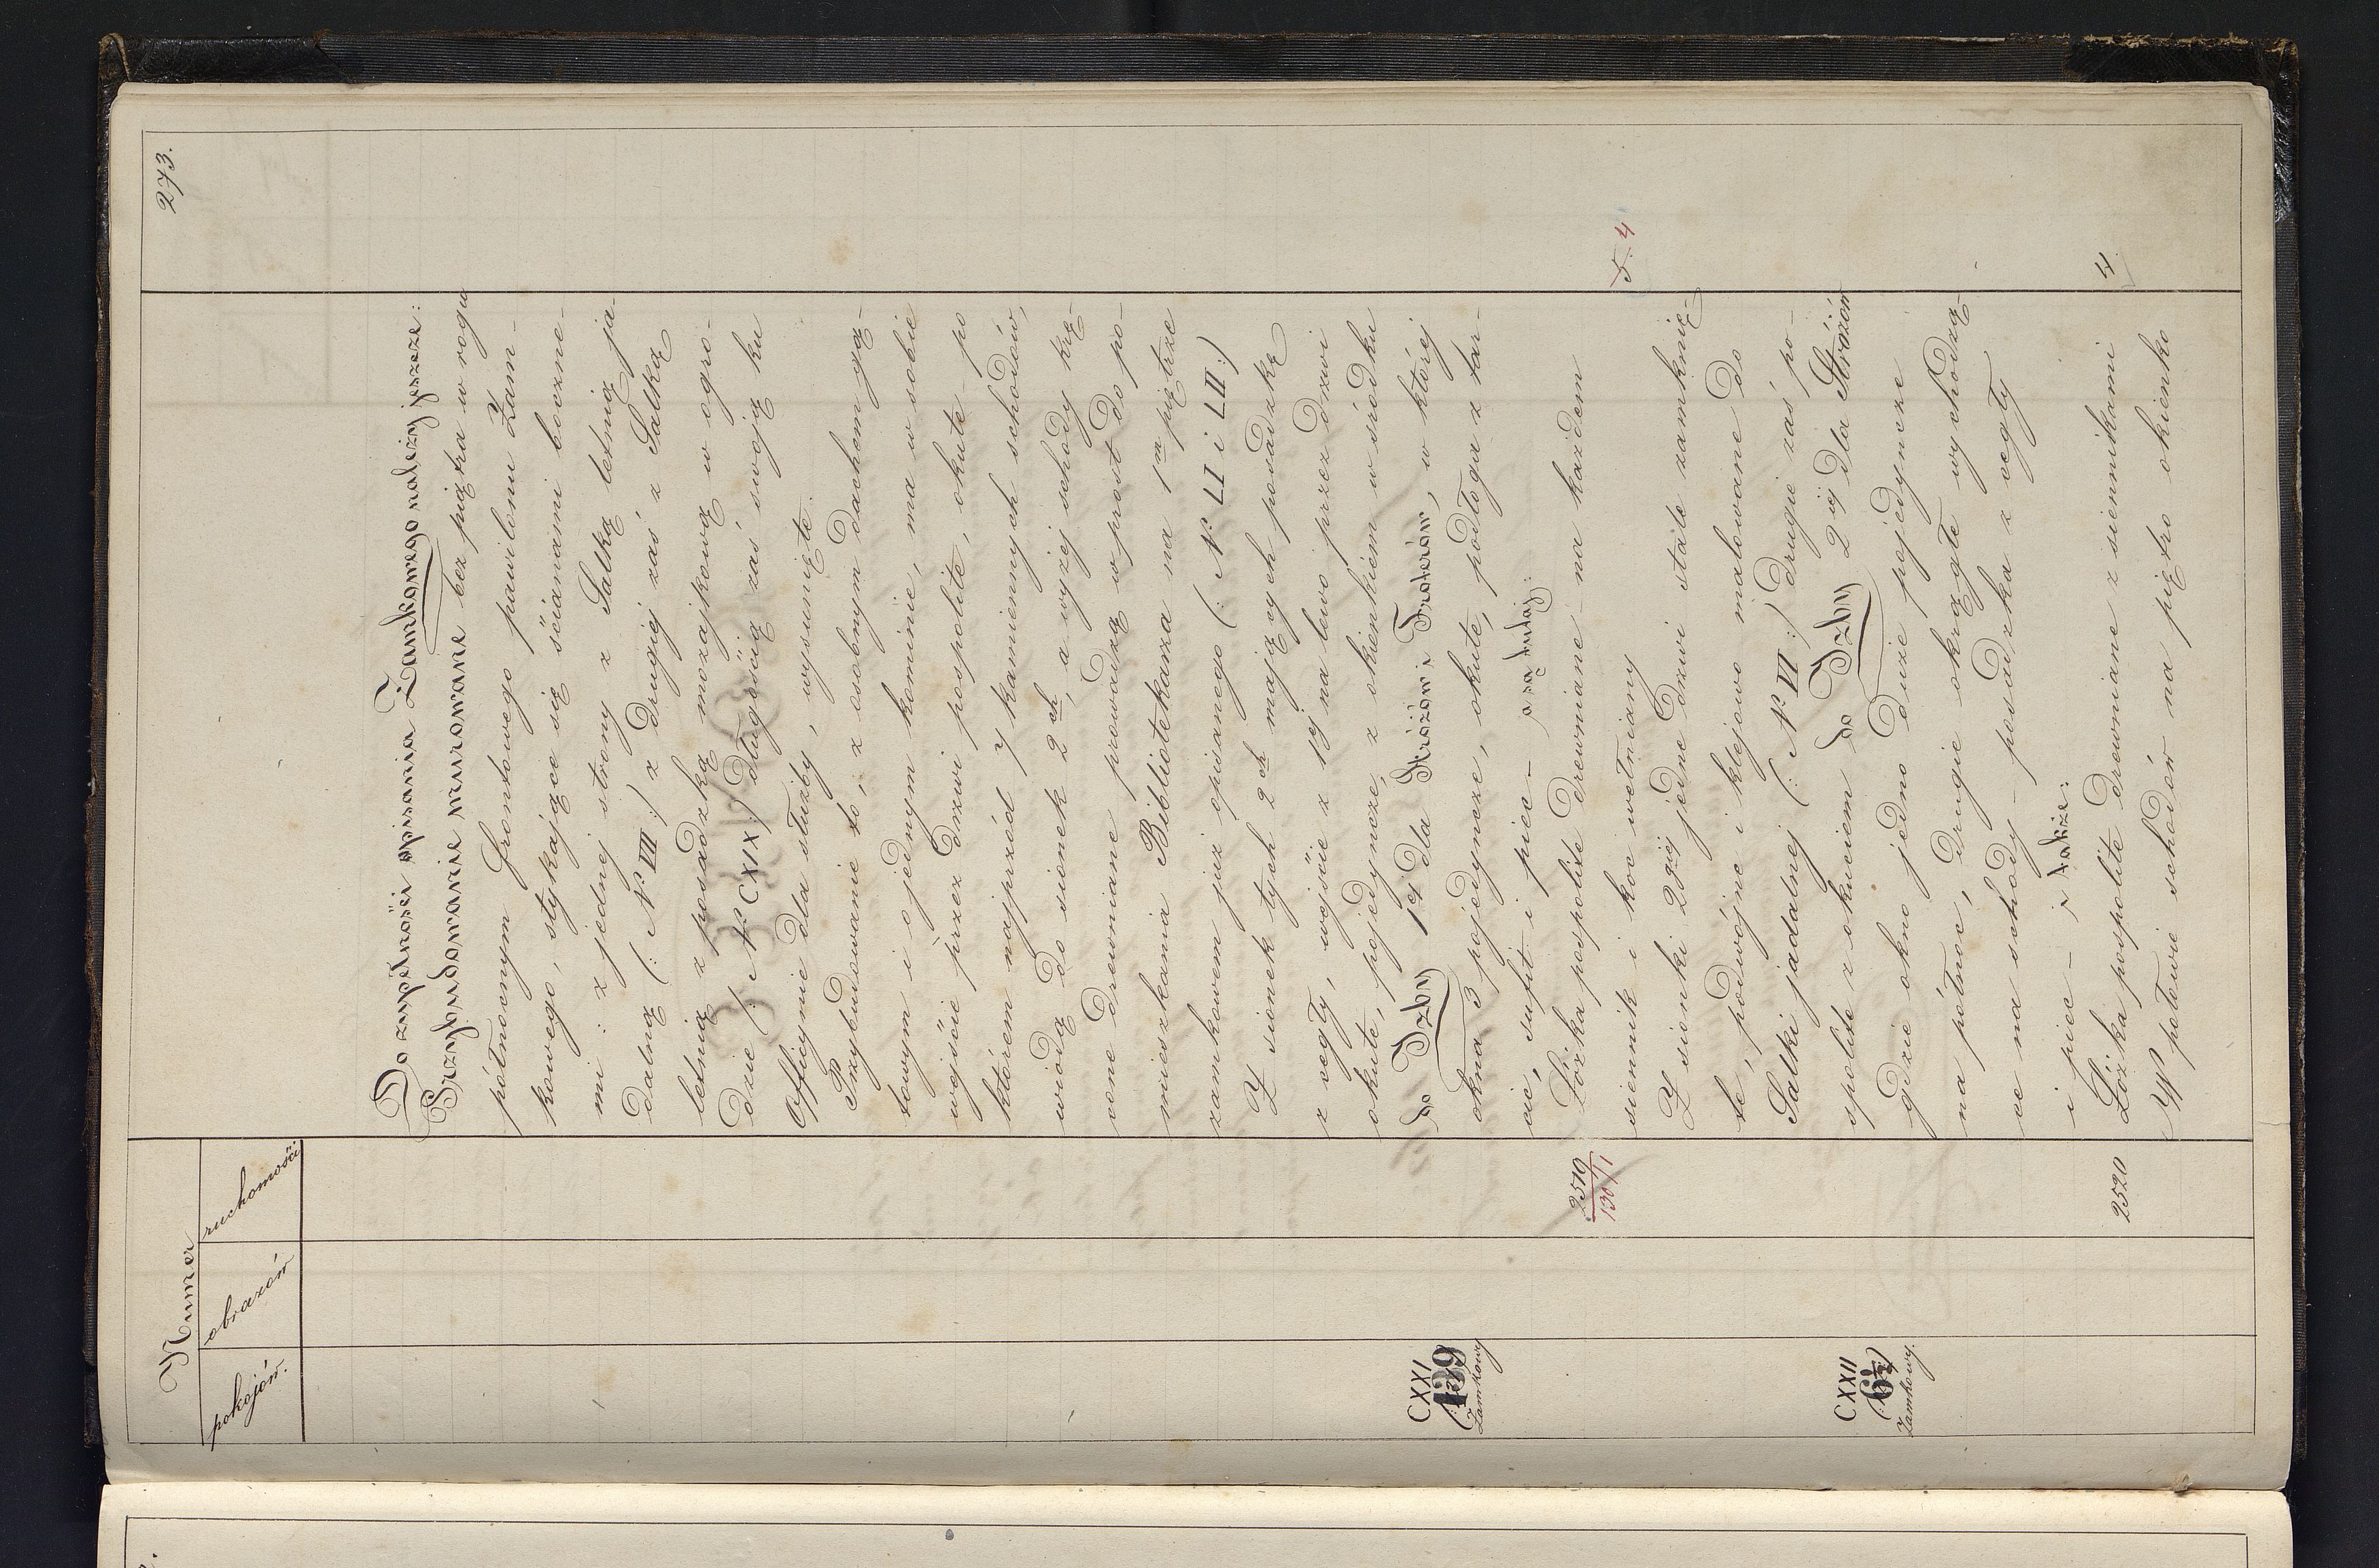 273.
Numer
pokojów. obrazów ruchomości
Do zupełności opisania Zamkowego należy jeszcze:
Przybudowanie murowane bez piętra w rogu
północnym frontowego pawilonu Zam-
kowego, stykające się ścianami boczne-
mi: z jednej strony z Salką letnią ja-
dalną (: N° VII :) z drugiej zaś z Salką
letnią z posadzką mozajkową w ogro-
dzie (: N° CXIX :) długością zaś swoją ku
Officynie dla służby, wysunięte.
Przybudowanie to, z osobnym dachem gą-
towym i o jednym kominie, ma w sobie
wejście przez drzwi pospolite, okute po
którem najprzód 7 kamiennych schodów,
wiodą do sionek 2ch, a wyżej schody krę-
cone drewniane prowadzą wprost do po-
mieszkania Bibliotekarza na 1m piętrze
zamkowem już opisanego (: N° LI i LII :)
Z sionek tych 2ch mających posadzkę
z cegły, wejście z 1ej na lewo przez drzwi
okute, pojedyncze, z okienkiem w środku
CXXI do Izby 1ej dla Stróżów i Froterów, w której
139 Zamkowy okna 3 pojedyncze, okute, podłoga z tar-
cic, sufit i piec – są tutaj:
2519 Łóżka pospolite drewniane na każdem
1301/1 siennik i koc wełniany 5. 4
Z sionki 2giej jedne drzwi stale zamknię-
te, podwójne i klejowo malowane do
Salki jadalnej (: N° VI :) drugie zaś po-
CXXII spolite z okuciem do Izby 2ej dla Stróżów
61 Zamkowy. gdzie okno jedno duże pojedyncze
na północ, drugie okrągłe wychodzą-
ce na schody – posadzka z cegły
i piec – i także:
2520 Łóżka pospolite drewniane z siennikami 4
W połowie schodów na piętro okienko